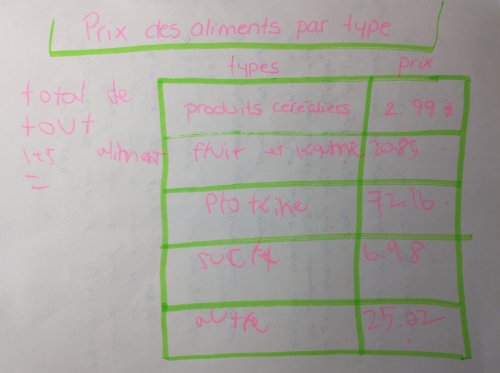 Prix des aliments par type
types prix
total de
tout
les aliment
=
produits céréaliers 2.99 $
fruit et légume 20.85
Protéine 72.16
sucré 6.98
autre 25.02